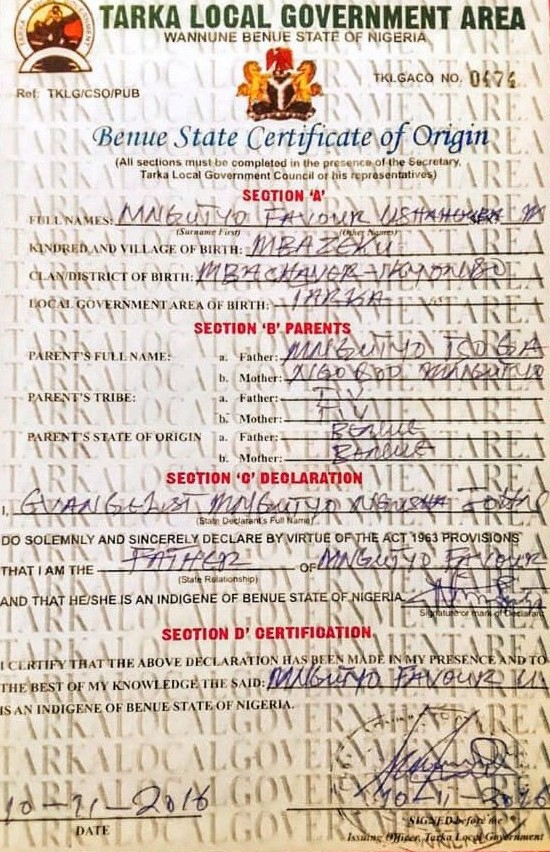 TARKA LOCAL GOVERNMENT AREA
WANNUNE BENUE STATE OF NIGERIA
TKLGACO NO. 0474
Ref: TKLG/CSO/PUB
Benue State Certificate of Origin
(All sections must be completed in the presence of the Secretary,
Tarka Local Government Council or his representatives)
SECTION 'A'
FULL NAMES: MNGUTYO FAVOUR
(Surname First) (Other Names)
KINDRED AND VILLAGE OF BIRTH: MBAZEKU
CLAN/DISTRICT OF BIRTH: MBACHAVER-
LOCAL GOVERNMENT AREA OF BIRTH: TARKA
SECTION 'B' PARENTS
PARENT'S FULL NAME: a. Father: MNGUTYO
b. Mother: MNGUTYO
PARENT'S TRIBE: a. Father: TIV
b. Mother: TIV
PARENT'S STATE OF ORIGIN a. Father: BENUE
b. Mother: BENUE
SECTION 'C' DECLARATION
I, EVANGELIST MNGUTYO
(State Declarant's Full Name)
DO SOLEMNLY AND SINCERELY DECLARE BY VIRTUE OF THE ACT 1963 PROVISIONS
THAT I AM THE FATHER OF MNGUTYO FAVOUR
(State Relationship)
AND THAT HE/SHE IS AN INDIGENE OF BENUE STATE OF NIGERIA
Signature or mark of Declarant
SECTION D' CERTIFICATION
I CERTIFY THAT THE ABOVE DECLARATION HAS BEEN MADE IN MY PRESENCE AND TO
THE BEST OF MY KNOWLEDGE THE SAID: MNGUTYO FAVOUR U
IS AN INDIGENE OF BENUE STATE OF NIGERIA.
10-11-2016 10-11-2016
DATE
SIGNED before me
Issuing Officer, Tarka Local Government